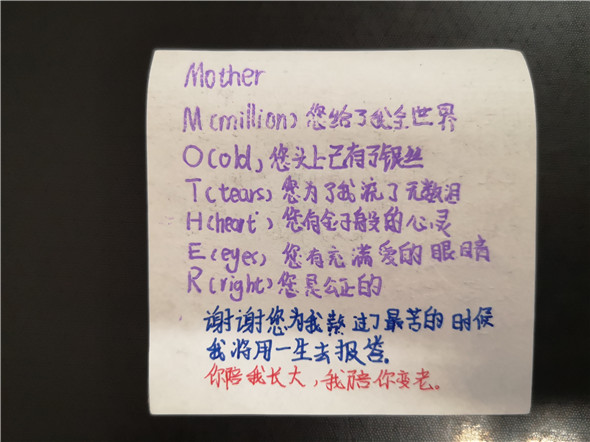 Mother
M(million)您给了我全世界
O(old)您头上已有了银丝
T(tears)您为了我流了无数泪
H(heart)您有金子般的心灵
E(eyes)您有充满爱的眼睛
R(right)您是公正的
谢谢您为我熬过了最苦的时候
我将用一生去报答.
你陪我长大,我陪你变老。